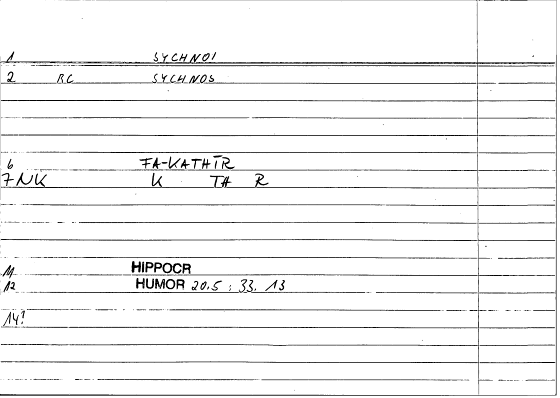 1 SYCHNOI
2 RC SYCHNOS
6 FA-KATHĪR
7 NK K TA R
11 HIPPOCR
12 HUMOR 20.5 : 33. 13
14!